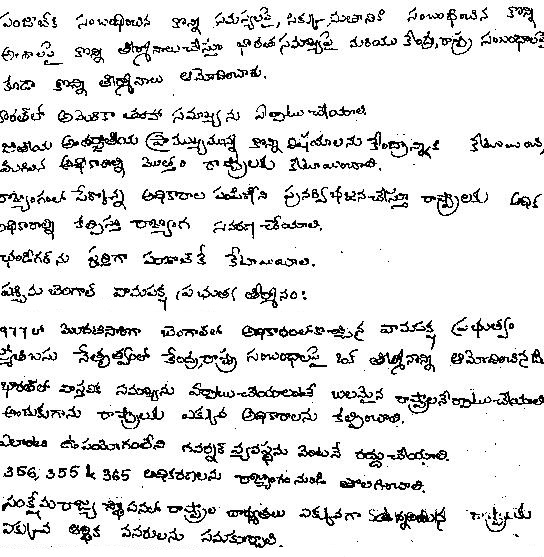 పంజాబ్‌కు సంబంధించిన కొన్ని సమస్యలపై, సిక్కు మతానికి సంబంధించిన కొన్ని
అంశాలపై కొన్ని తీర్మానాలు చేస్తూ భారత సమాఖ్యపై మరియు కేంద్ర, రాష్ట్ర సంబంధాలపై
కూడా కొన్ని తీర్మానాలు ఆమోదించారు.
భారత్‌లో అమెరికా తరహా సమాఖ్యను ఏర్పాటు చేయాలి.
జాతీయ అంతర్జాతీయ ప్రాముఖ్యమున్న కొన్ని విషయాలను కేంద్రానికి కేటాయించి
మిగిలిన అధికారాల్ని మొత్తం రాష్ట్రాలకు కేటాయించాలి.
రాజ్యాంగంలో పేర్కొన్న అధికారాల పంపిణీని పునర్విభజన చేస్తూ రాష్ట్రాలకు అధిక
అధికారాల్ని కల్పిస్తూ రాజ్యాంగ సవరణ చేయాలి.
ఛండీగఢ్‌ను పూర్తిగా పంజాబ్‌కే కేటాయించాలి.
పశ్చిమ బెంగాల్ వామపక్ష ప్రభుత్వ తీర్మానం:
1977లో మొదటిసారిగా బెంగాల్‌లో అధికారంలోకొచ్చిన వామపక్ష ప్రభుత్వం
జ్యోతిబసు నేతృత్వంలో కేంద్ర, రాష్ట్ర సంబంధాలపై ఒక తీర్మానాన్ని ఆమోదించినది
భారత్‌లో వాస్తవిక సమాఖ్యను ఏర్పాటు చేయాలంటే బలమైన రాష్ట్రాలనేర్పాటు చేయాలి
అందుకుగాను రాష్ట్రాలకు ఎక్కువ అధికారాలను కల్పించాలి.
ఎలాంటి ఉపయోగంలేని గవర్నర్ వ్యవస్థను వెంటనే రద్దు చేయాలి.
356, 355 & 365 అధికరణలను రాజ్యాంగం నుండి తొలగించాలి.
సంక్షేమ రాజ్య స్థాపనలో రాష్ట్రాల బాధ్యతలు ఎక్కువగా రాష్ట్రాలకు
ఎక్కువ ఆర్థిక వనరులను సమకూర్చాలి.